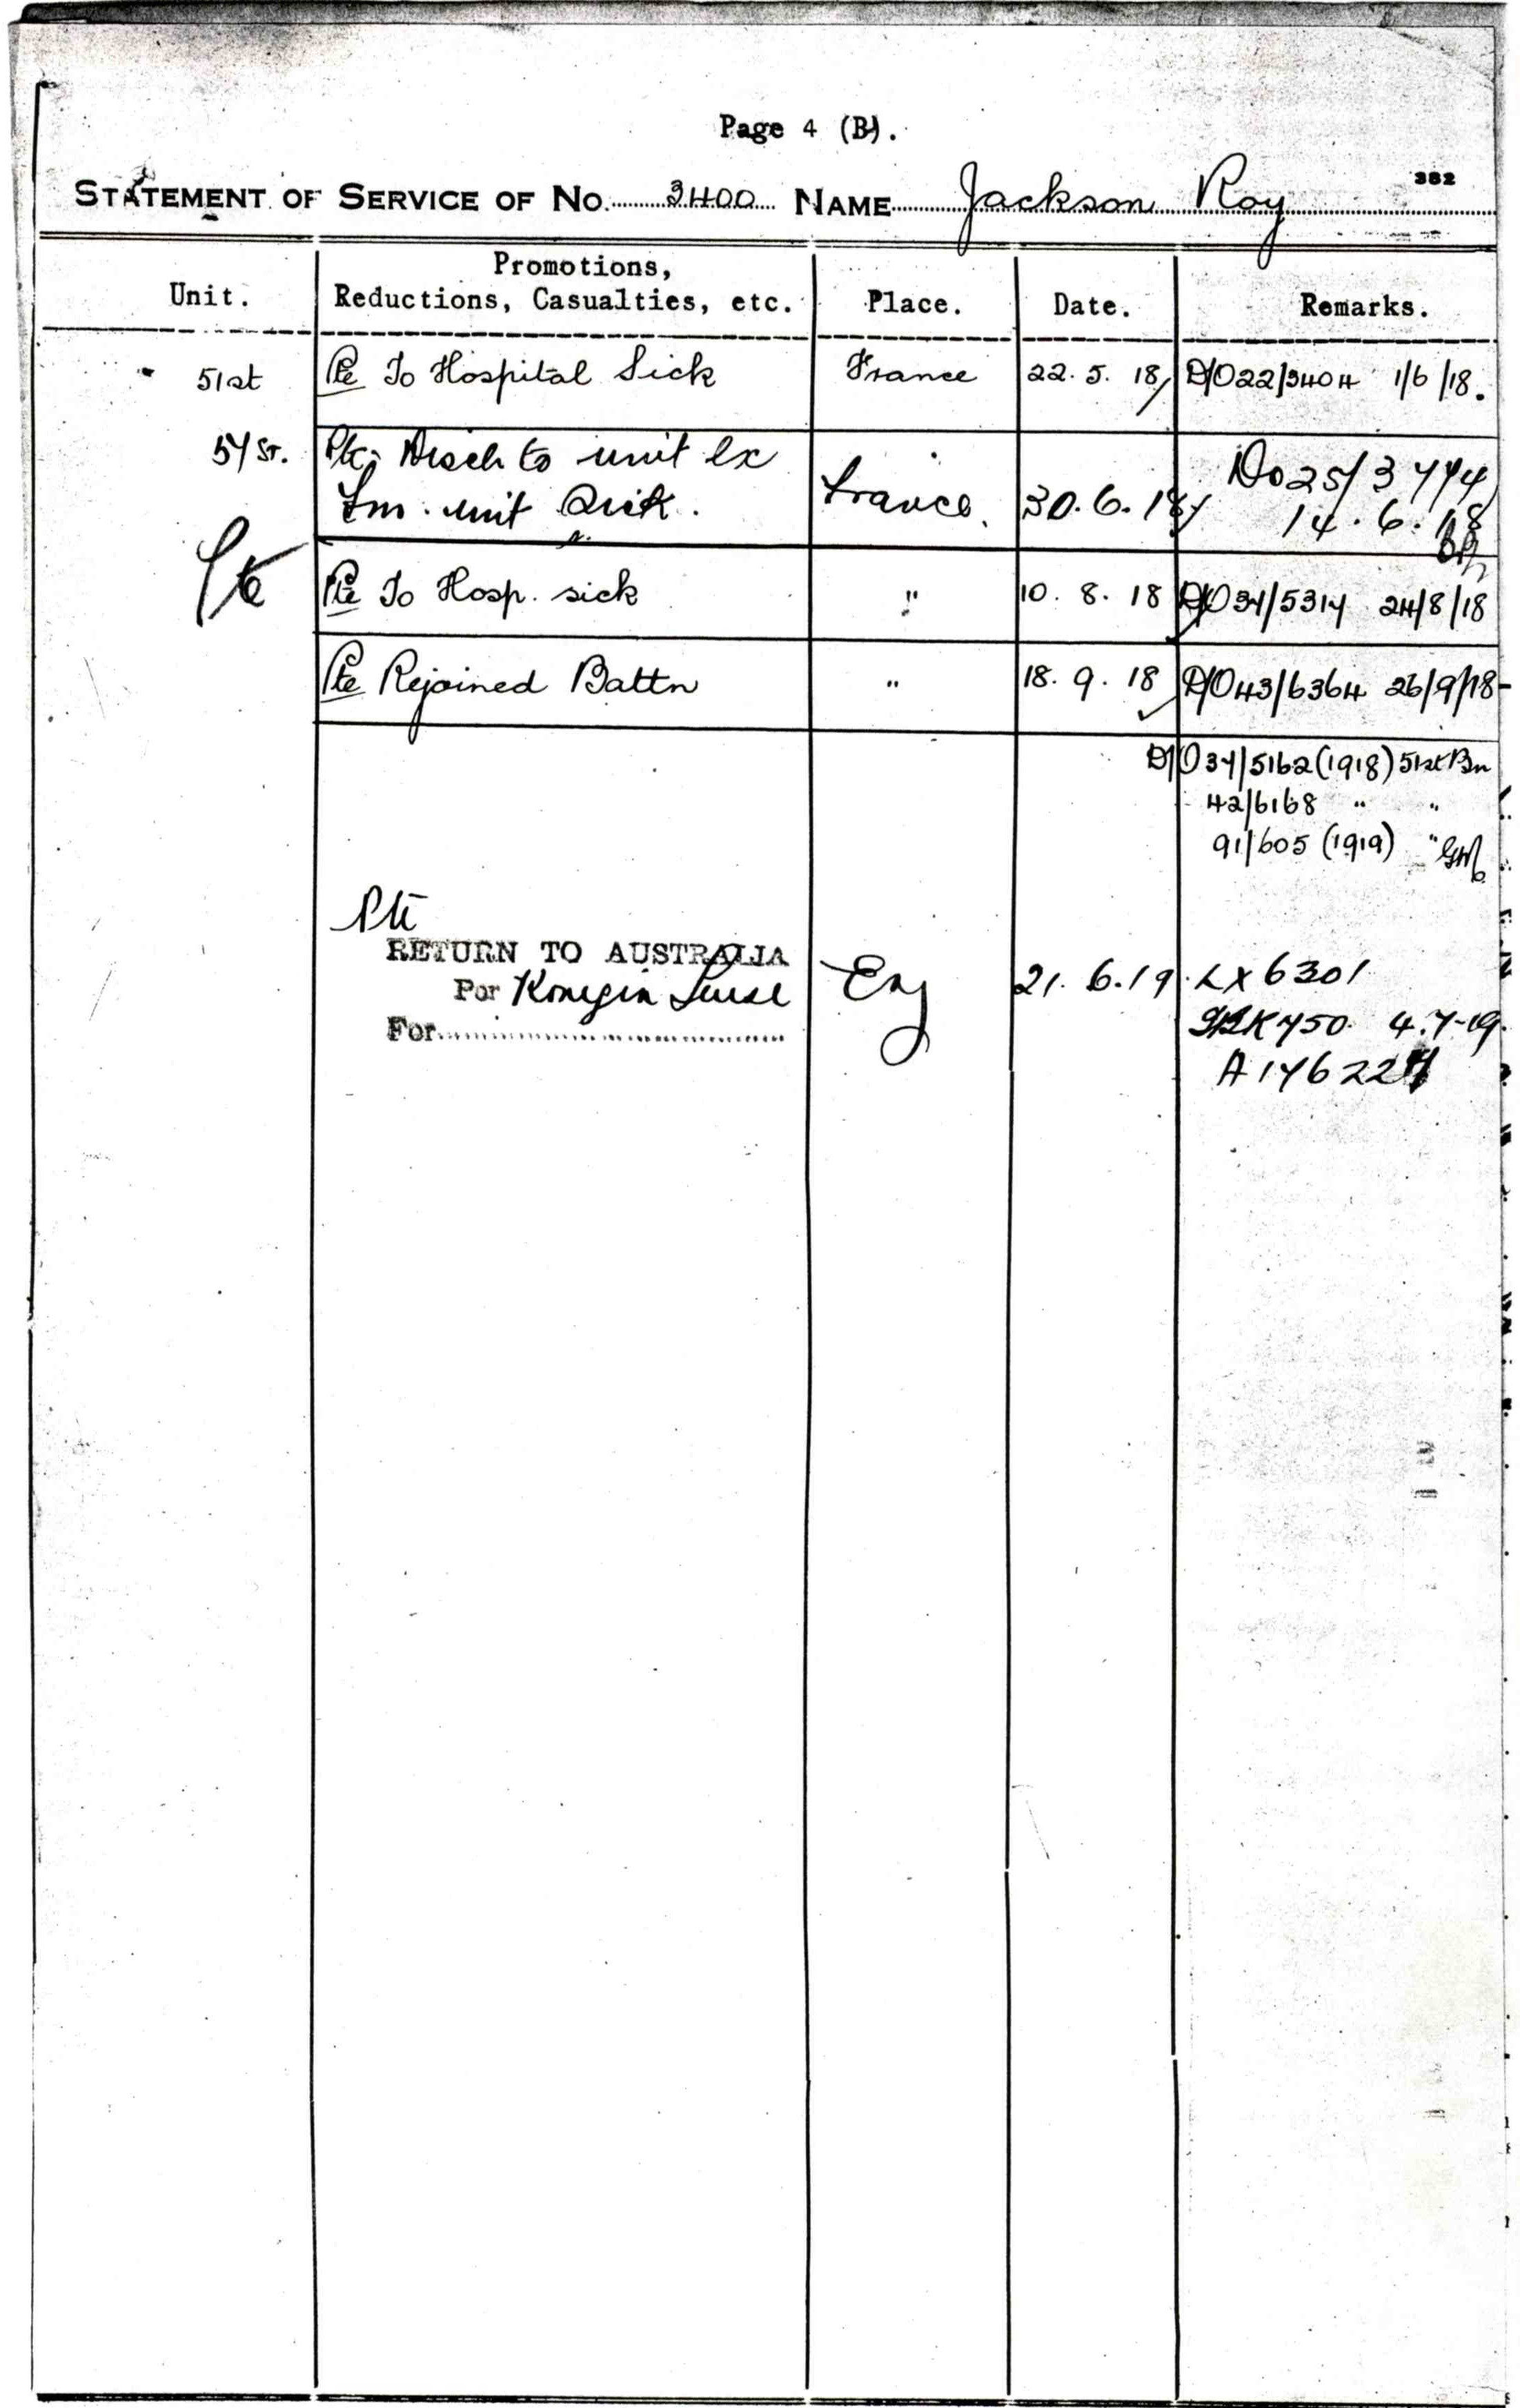 Page 4 (B).
382
STATEMENT OF SERVICE OF No. 3400 NAME Jackson Roy
Unit. Promotions, Reductions, Casualties, etc. Place. Date. Remarks.
51st Pte To Hospital Sick France 22. 5. 18 D/O 22/3404 1/6/18.
51 St. Pte Disch to unit ex France. 30. 6. 18 DO 25/3774
unit Sick. 14. 6. 18
Pte
Pte To Hosp. sick " 10. 8. 18 D/O 37/5317 24/8/18
Pte Rejoined Battn " 18. 9. 18 D/O 43/6364 26/9/18
D/O 37/5162 (1918) 51st Bn
42/6168 " "
91/605 (1919) "
Pte
RETURN TO AUSTRALIA
Per Konigin Luise Eng 21. 6. 19 LX 6301
For 750 4.7-19.